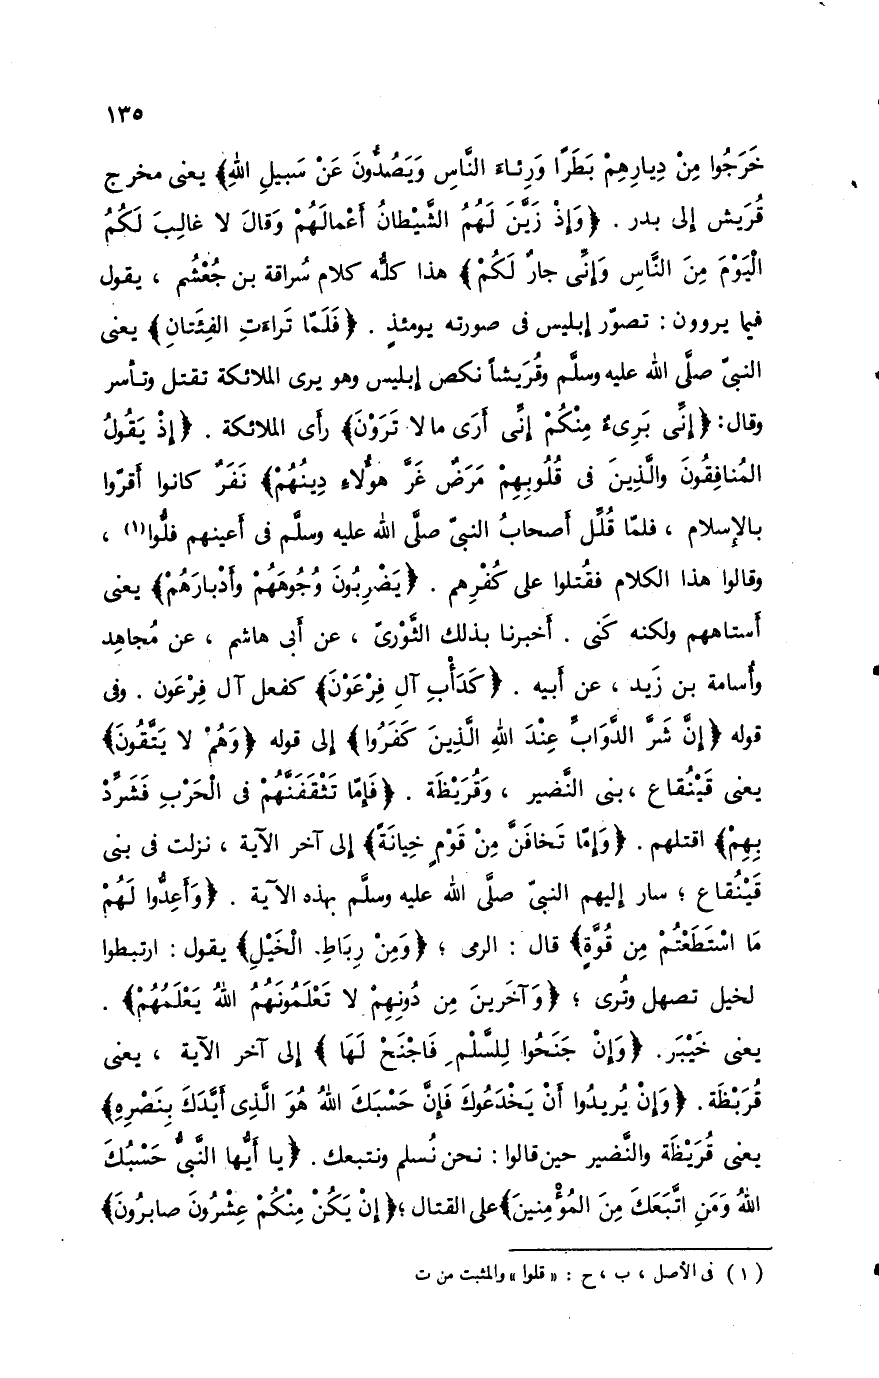 ١٣٥
خَرَجُوا مِنْ دِيارِهِمْ بَطَرًا وَرِئاءَ النَّاسِ وَيَصُدُّونَ عَنْ سَبيلِ اللهِ﴾ يعنى مخرج
قُرَيش إلى بدر . ﴿وَإذْ زَيَّنَ لَهُمُ الشَّيْطانُ أَعْمالَهُمْ وَقالَ لا غالِبَ لَكُمُ
الْيَوْمَ مِنَ النَّاسِ وَإنِّى جارٌ لَكُمْ﴾ هذا كلُّه كلام سُراقة بن جُعْشُم ، يقول
فيما يروون : تصوّر إبليس فى صورته يومئذٍ . ﴿فَلَمَّا تَراءَتِ الفِئَتانِ﴾ يعنى
النبىّ صلَّى الله عليه وسلَّم وقُرَيشاً نكص إبليس وهو يرى الملائكة تقتل وتأسر
وقال: ﴿إنِّى بَرِىءٌ مِنْكُمْ إنِّى أَرَى مالا تَرَوْنَ﴾ رأى الملائكة . ﴿إذْ يَقُولُ
المُنافِقُونَ والَّذِينَ فى قُلُوبِهِمْ مَرَضٌ غَرَّ هؤُلاءِ دِينُهُمْ﴾ نَفَرٌ كانوا أقرّوا
بالإسلام ، فلمّا قُلِّل أصحابُ النبىّ صلَّى الله عليه وسلَّم فى أعينهم فلُّوا(١) ،
وقالوا هذا الكلام فقُتلوا على كُفْرِهم . ﴿يَضْرِبُونَ وُجُوهَهُمْ وأَدْبارَهُمْ﴾ يعنى
أستاههم ولكنه كَنى . أخبرنا بذلك الثَّوْرىّ ، عن أبى هاشم ، عن مُجاهِد
وأُسامة بن زَيد ، عن أبيه . ﴿كَدَأْبِ آلِ فِرْعَوْنَ﴾ كفعل آل فِرْعَون . وفى
قوله ﴿إنَّ شَرَّ الدَّوَابِّ عِنْدَ اللهِ الَّذِينَ كَفَرُوا﴾ إلى قوله ﴿وَهُمْ لا يَتَّقُونَ﴾
يعنى قَيْنُقاع ، بنى النَّضير ، وَقُرَيْظَة . ﴿فَإمَّا تَثْقَفَنَّهُمْ فى الْحَرْبِ فَشَرِّدْ
بِهِمْ﴾ اقتلهم . ﴿وَإمَّا تَخافَنَّ مِنْ قَوْمٍ خِيانَةً﴾ إلى آخر الآية ، نزلت فى بنى
قَيْنُقاع ؛ سار إليهم النبىّ صلَّى الله عليه وسلَّم بهذه الآية . ﴿وَأَعِدُّوا لَهُمْ
مَا اسْتَطَعْتُمْ مِن قُوَّةٍ﴾ قال : الرمى ؛ ﴿وَمِنْ رِباطِ الْخَيْلِ﴾ يقول : ارتبطوا
لخيل تصهل وتُرى ؛ ﴿وَآخَرينَ مِن دُونِهِمْ لا تَعْلَمُونَهُمُ اللهُ يَعْلَمُهُمْ﴾ .
يعنى خَيْبَر. ﴿وَإنْ جَنَحُوا لِلسَّلْمِ فَاجْنَحْ لَهَا ﴾ إلى آخر الآية ، يعنى
قُرَيْظَة . ﴿وَإنْ يُريدُوا أنْ يَخْدَعُوكَ فَإنَّ حَسْبَكَ اللهُ هُوَ الَّذِى أَيَّدَكَ بِنَصْرِهِ﴾
يعنى قُرَيْظَة والنَّضير حين قالوا : نحن نُسلم ونتبعك . ﴿يا أَيُّها النَّبىُّ حَسْبُكَ
اللهُ وَمَنِ اتَّبَعَكَ مِنَ المُؤْمِنينَ﴾ على القتال ؛ ﴿إنْ يَكُنْ مِنْكُمْ عِشْرُونَ صابرُونَ﴾
(١) فى الأصل ، ب ، ح : « قلوا » والمثبت من ت